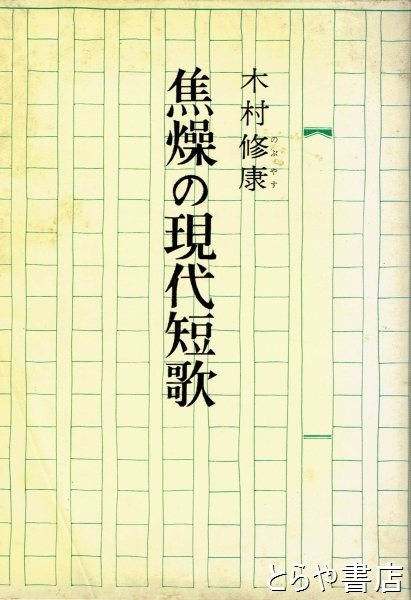 木村修康
のぶやす
焦燥の現代短歌
とらや書店